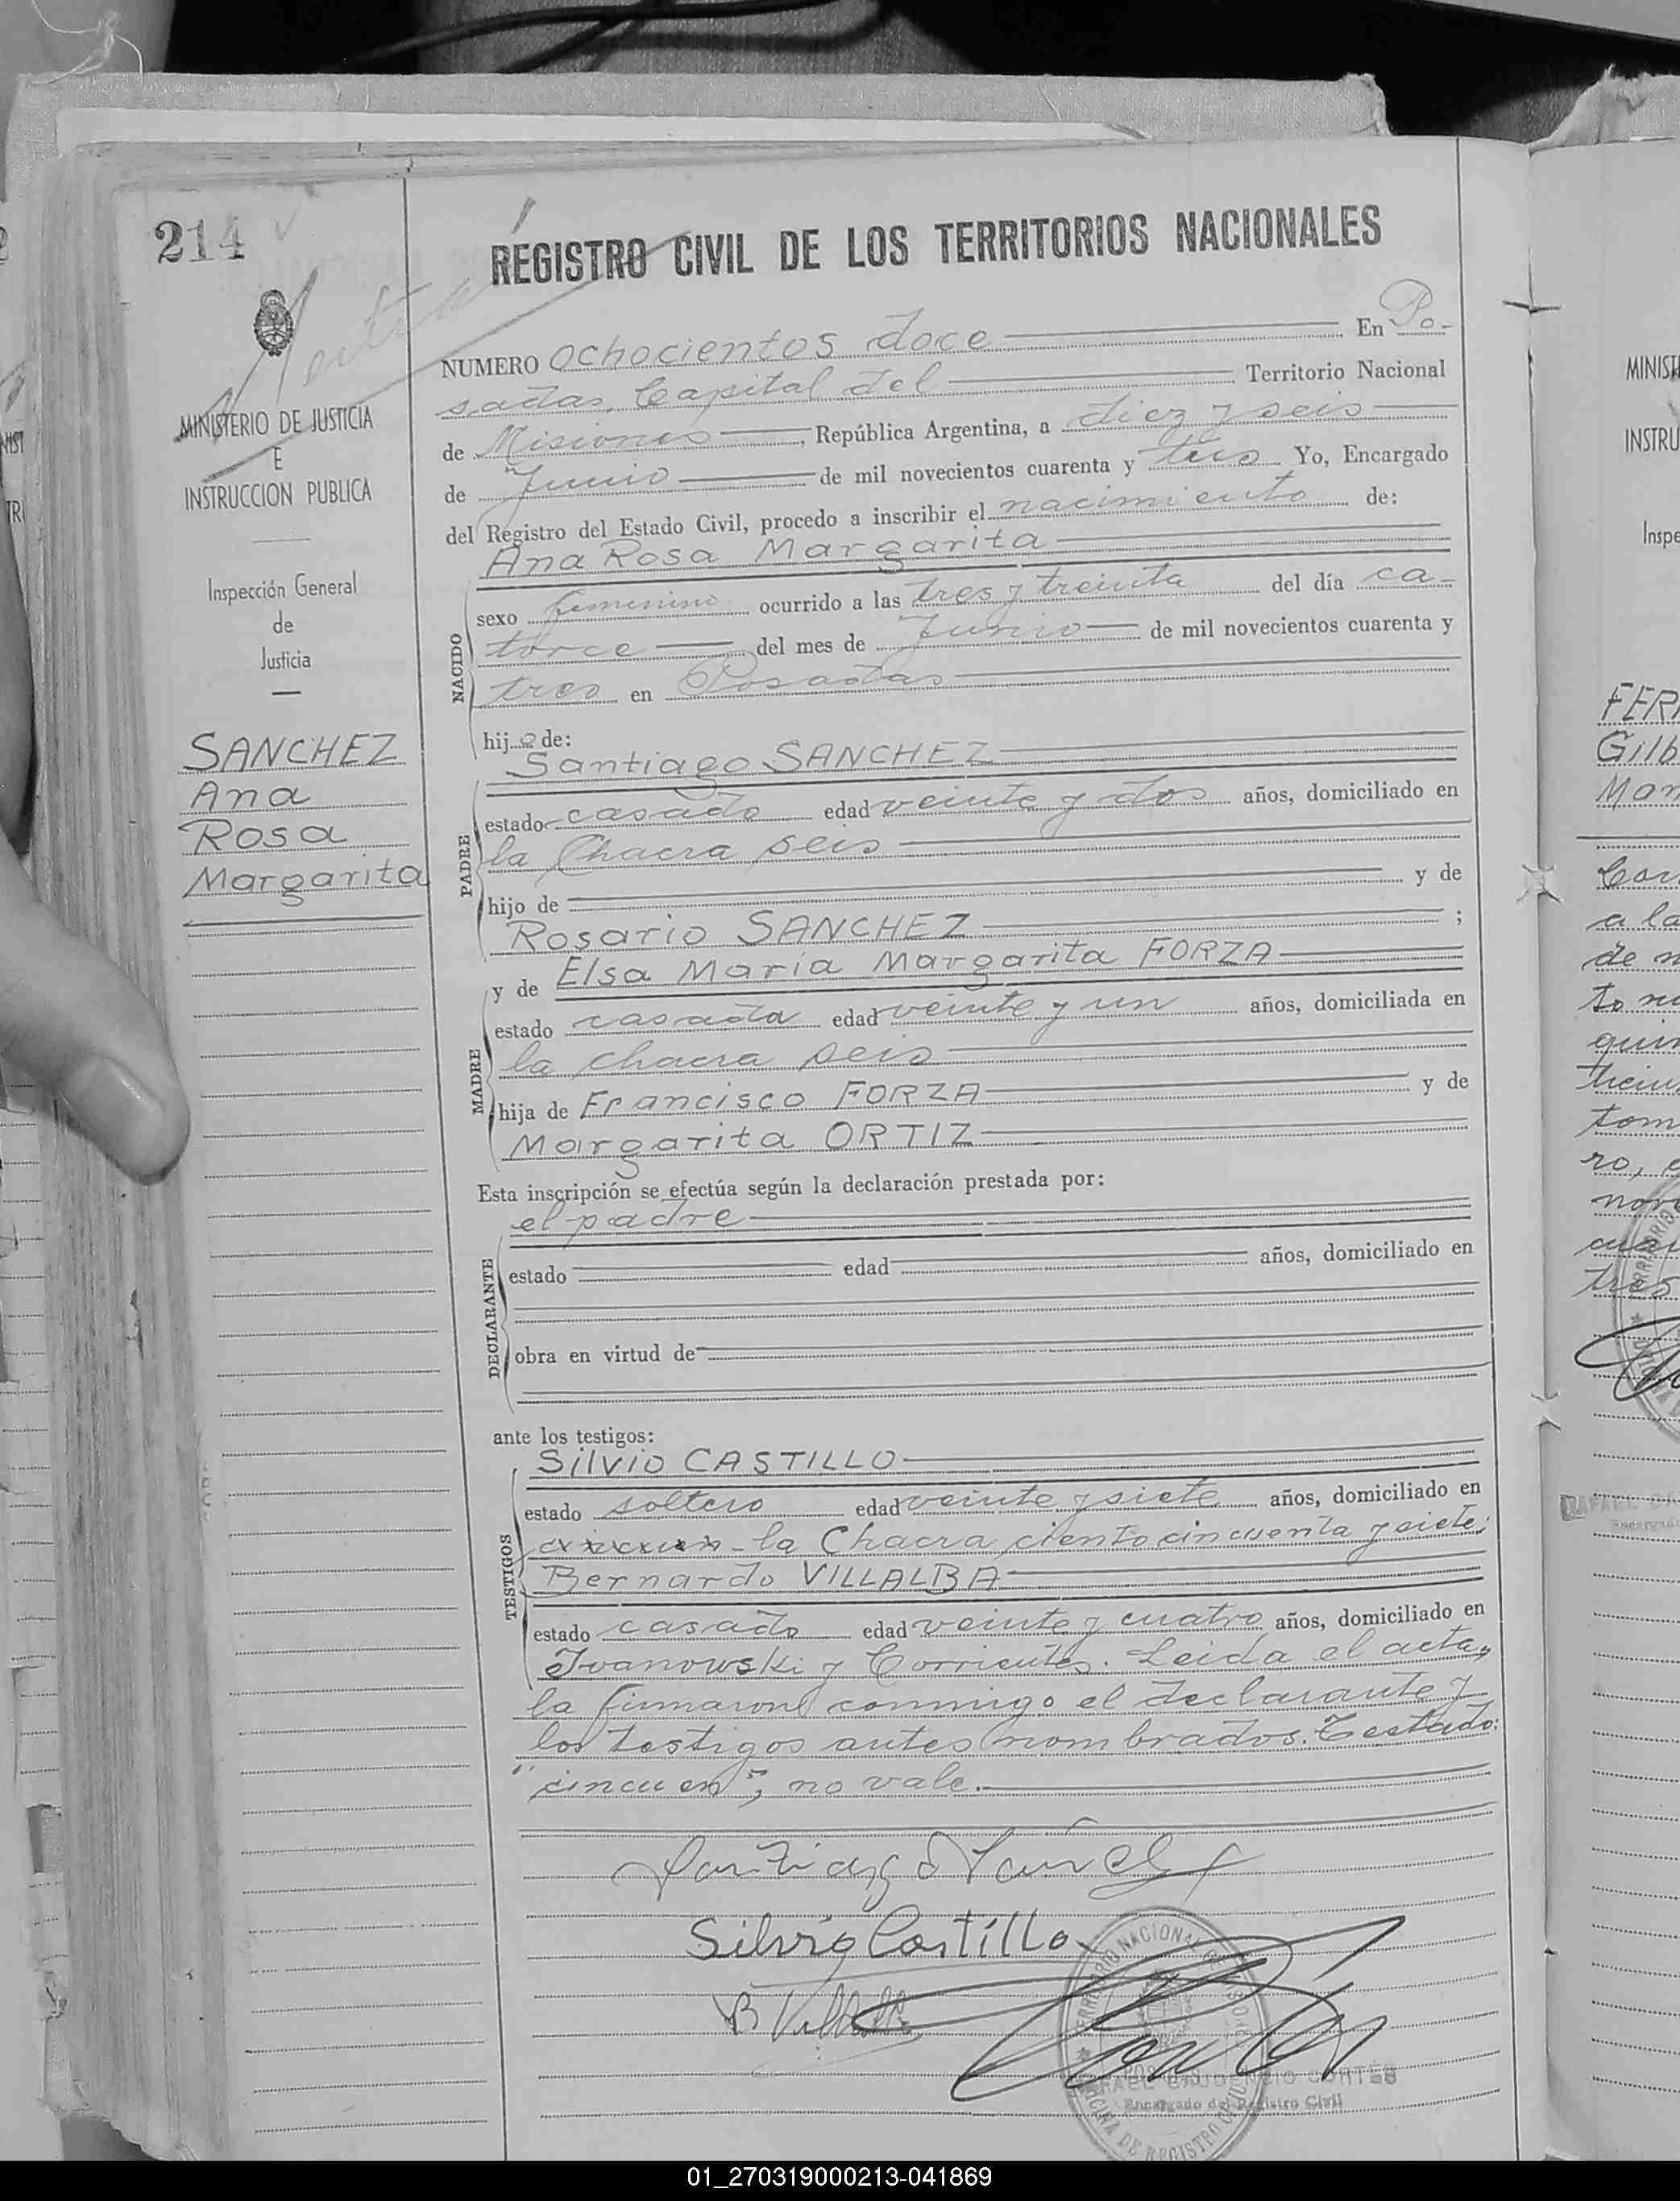 214
REGISTRO CIVIL DE LOS TERRITORIOS NACIONALES
MINISTERIO DE JUSTICIA
E
INSTRUCCION PUBLICA
Inspección General
de
Justicia
SANCHEZ
Ana
Rosa
Margarita
NUMERO ochocientos doce En Po-
sadas, Capital del Territorio Nacional
de Misiones, República Argentina, a diez y seis
de Junio de mil novecientos cuarenta y tres Yo, Encargado
del Registro del Estado Civil, procedo a inscribir el nacimiento de:
Ana Rosa Margarita
NACIDO
sexo femenino ocurrido a las tres y treinta del día ca-
torce del mes de Junio de mil novecientos cuarenta y
tres en Posadas
hija de:
Santiago SANCHEZ
PADRE
estado casado edad veinte y dos años, domiciliado en
la Chacra seis
hijo de y de
Rosario SANCHEZ ;
y de Elsa María Margarita FORZA
MADRE
estado casada edad veinte y un años, domiciliada en
la chacra seis
hija de Francisco FORZA y de
Margarita ORTIZ
Esta inscripción se efectúa según la declaración prestada por:
el padre
DECLARANTE
estado edad años, domiciliado en
obra en virtud de
ante los testigos:
Silvio CASTILLO
TESTIGOS
estado soltero edad veinte y siete años, domiciliado en
la Chacra ciento cincuenta y siete;
Bernardo VILLALBA
estado casado edad veinte y cuatro años, domiciliado en
Ivanowski y Corrientes. Leida el acta,
la firmaron conmigo el declarante y
los testigos antes nombrados. Testado:
"cincuen", no vale.
Santiago Sanchez
Silvio Castillo
B Villalba
RAFAEL GAUDENCIO CORTÉS
Encargado del Registro Civil
MINIST
INSTRU
Inspe
FER
Gilb
Mar
a la
de
quin
tom
ro,
tres
01_270319000213-041869